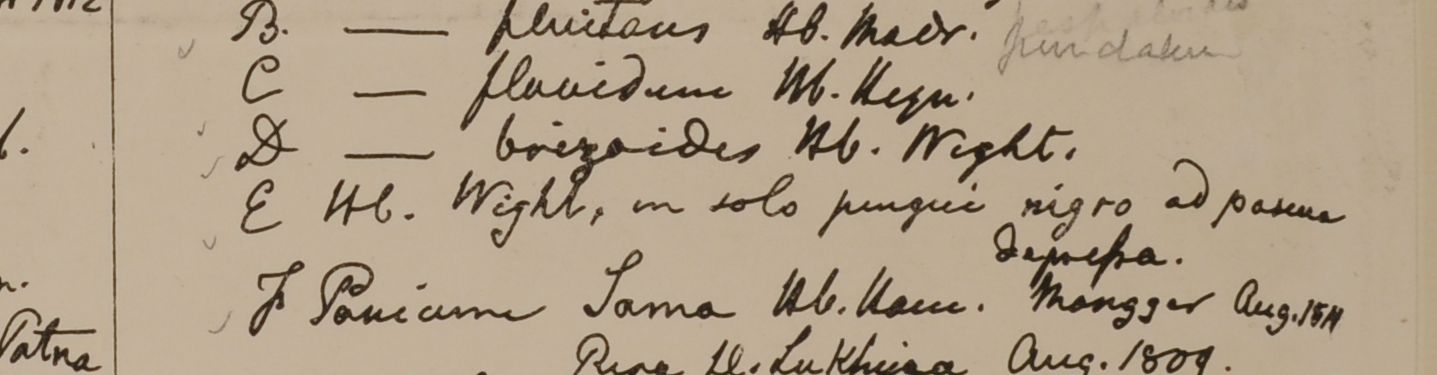 B. — fluitans Hb. Madr.
C — flavidum Hb. Heyn.
D — brizoides Hb. Wight.
E Hb. Wight, in solo pingui nigro ad pascua
depressa.
F Panicum Sama Hb. Ham. Mongger Aug. 1811
Aug. 1809.
Patna